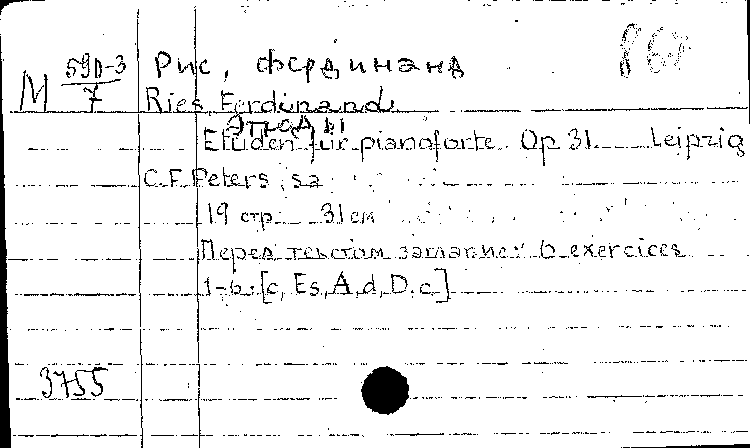 Рис, Фердинанд 867
М 59п-3
7
Ries, Ferdinand
Этюды
Etüden für pianoforte Op 31. Leipzig
C.F. Peters, sa
19 стр 31 см
Перед текстом заглавие: 6 exercices
1-6: [c, Es, A, d, D, c]
3755